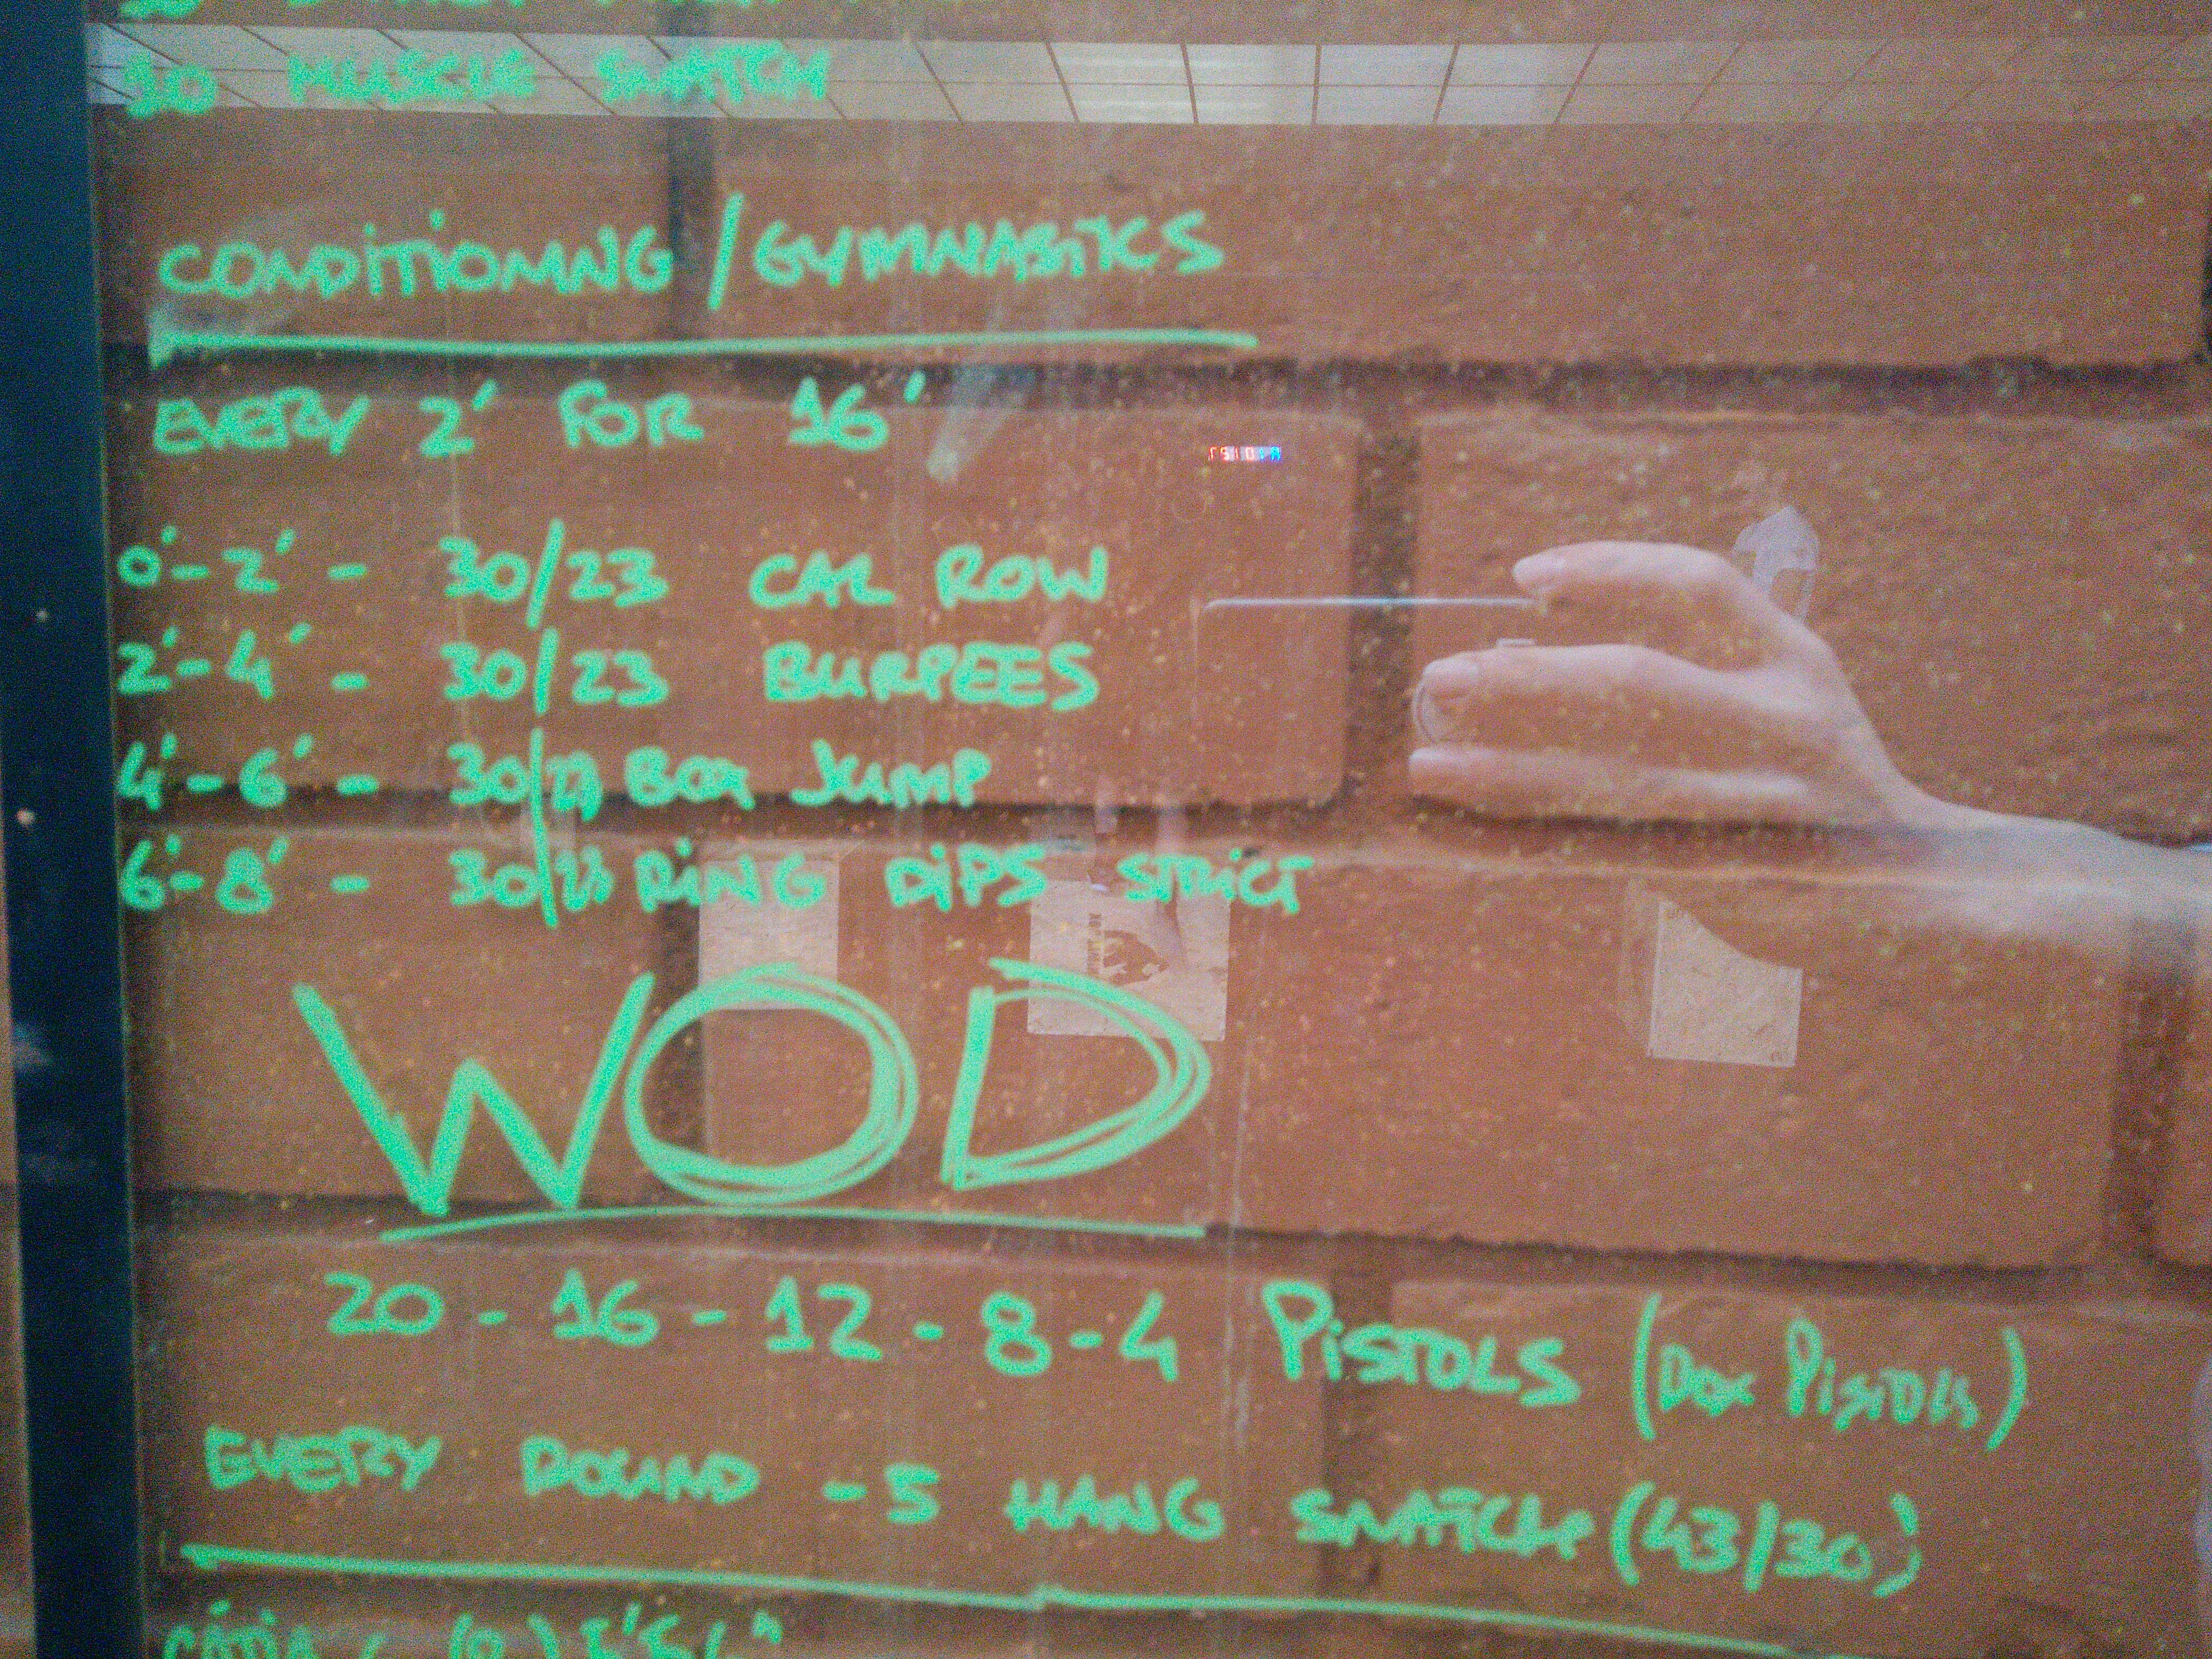 30 MUSCLE SNATCH
CONDITIONING / GYMNASTICS
EVERY 2' FOR 16'
0'-2' - 30/23 CAL ROW
2'-4' - 30/23 BURPEES
4'-6' - 30/23 BOX JUMP
6'-8' - 30/23 RING DIPS STRICT
WOD
20 - 16 - 12 - 8 - 4 PISTOLS (BOX PISTOLS)
EVERY ROUND - 5 HANG SNATCH (43/30)